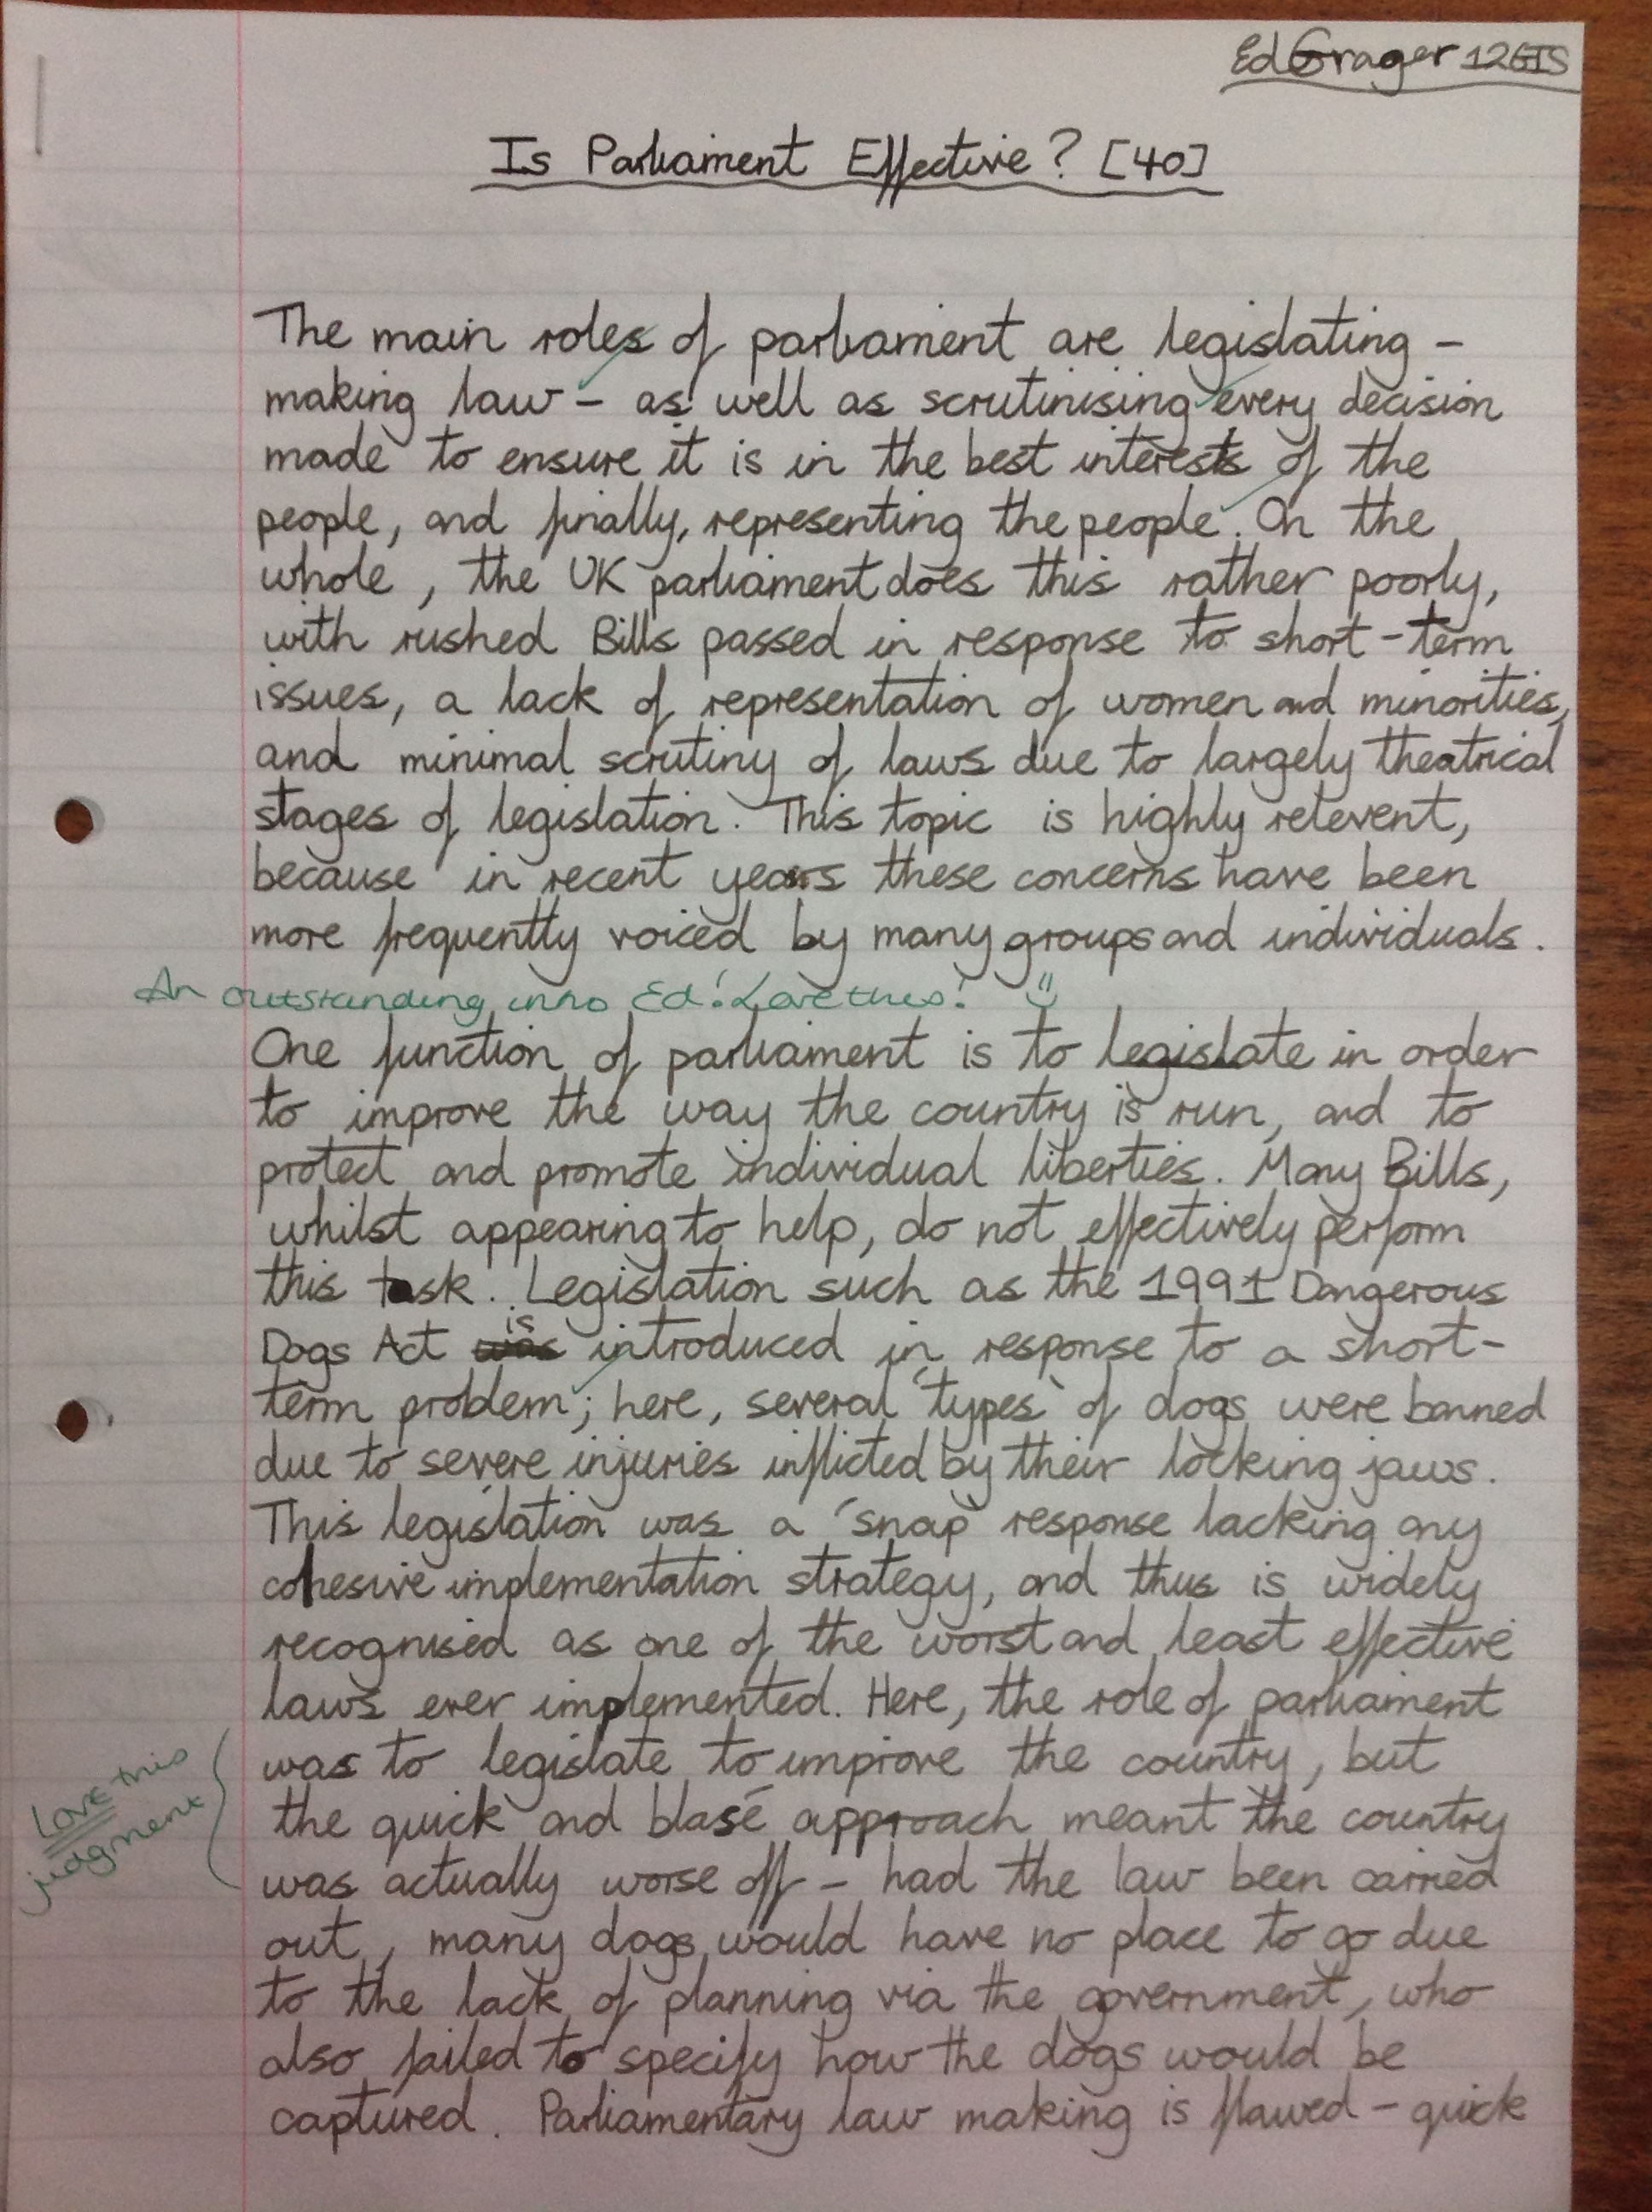 Ed Grager 12GIS
Is Parliament Effective? [40]
The main roles of parliament are legislating -
making law - as well as scrutinising every decision
made to ensure it is in the best interests of the
people, and finally, representing the people. On the
whole, the UK parliament does this rather poorly,
with rushed Bills passed in response to short-term
issues, a lack of representation of women and minorities,
and minimal scrutiny of laws due to largely theatrical
stages of legislation. This topic is highly relevent,
because in recent years these concerns have been
more frequently voiced by many groups and individuals.
An outstanding intro Ed! Love this! :)
One function of parliament is to legislate in order
to improve the way the country is run, and to
protect and promote individual liberties. Many Bills,
whilst appearing to help, do not effectively perform
this task. Legislation such as the 1991 Dangerous
Dogs Act was is introduced in response to a short-
term problem; here, several 'types' of dogs were banned
due to severe injuries inflicted by their locking jaws.
This legislation was a 'snap' response lacking any
cohesive implementation strategy, and thus is widely
recognised as one of the worst and least effective
laws ever implemented. Here, the role of parliament
was to legislate to improve the country, but
the quick and blasé approach meant the country
was actually worse off - had the law been carried
out, many dogs would have no place to go due
to the lack of planning via the government, who
also failed to specify how the dogs would be
captured. Parliamentary law making is flawed - quick
Love this
judgment